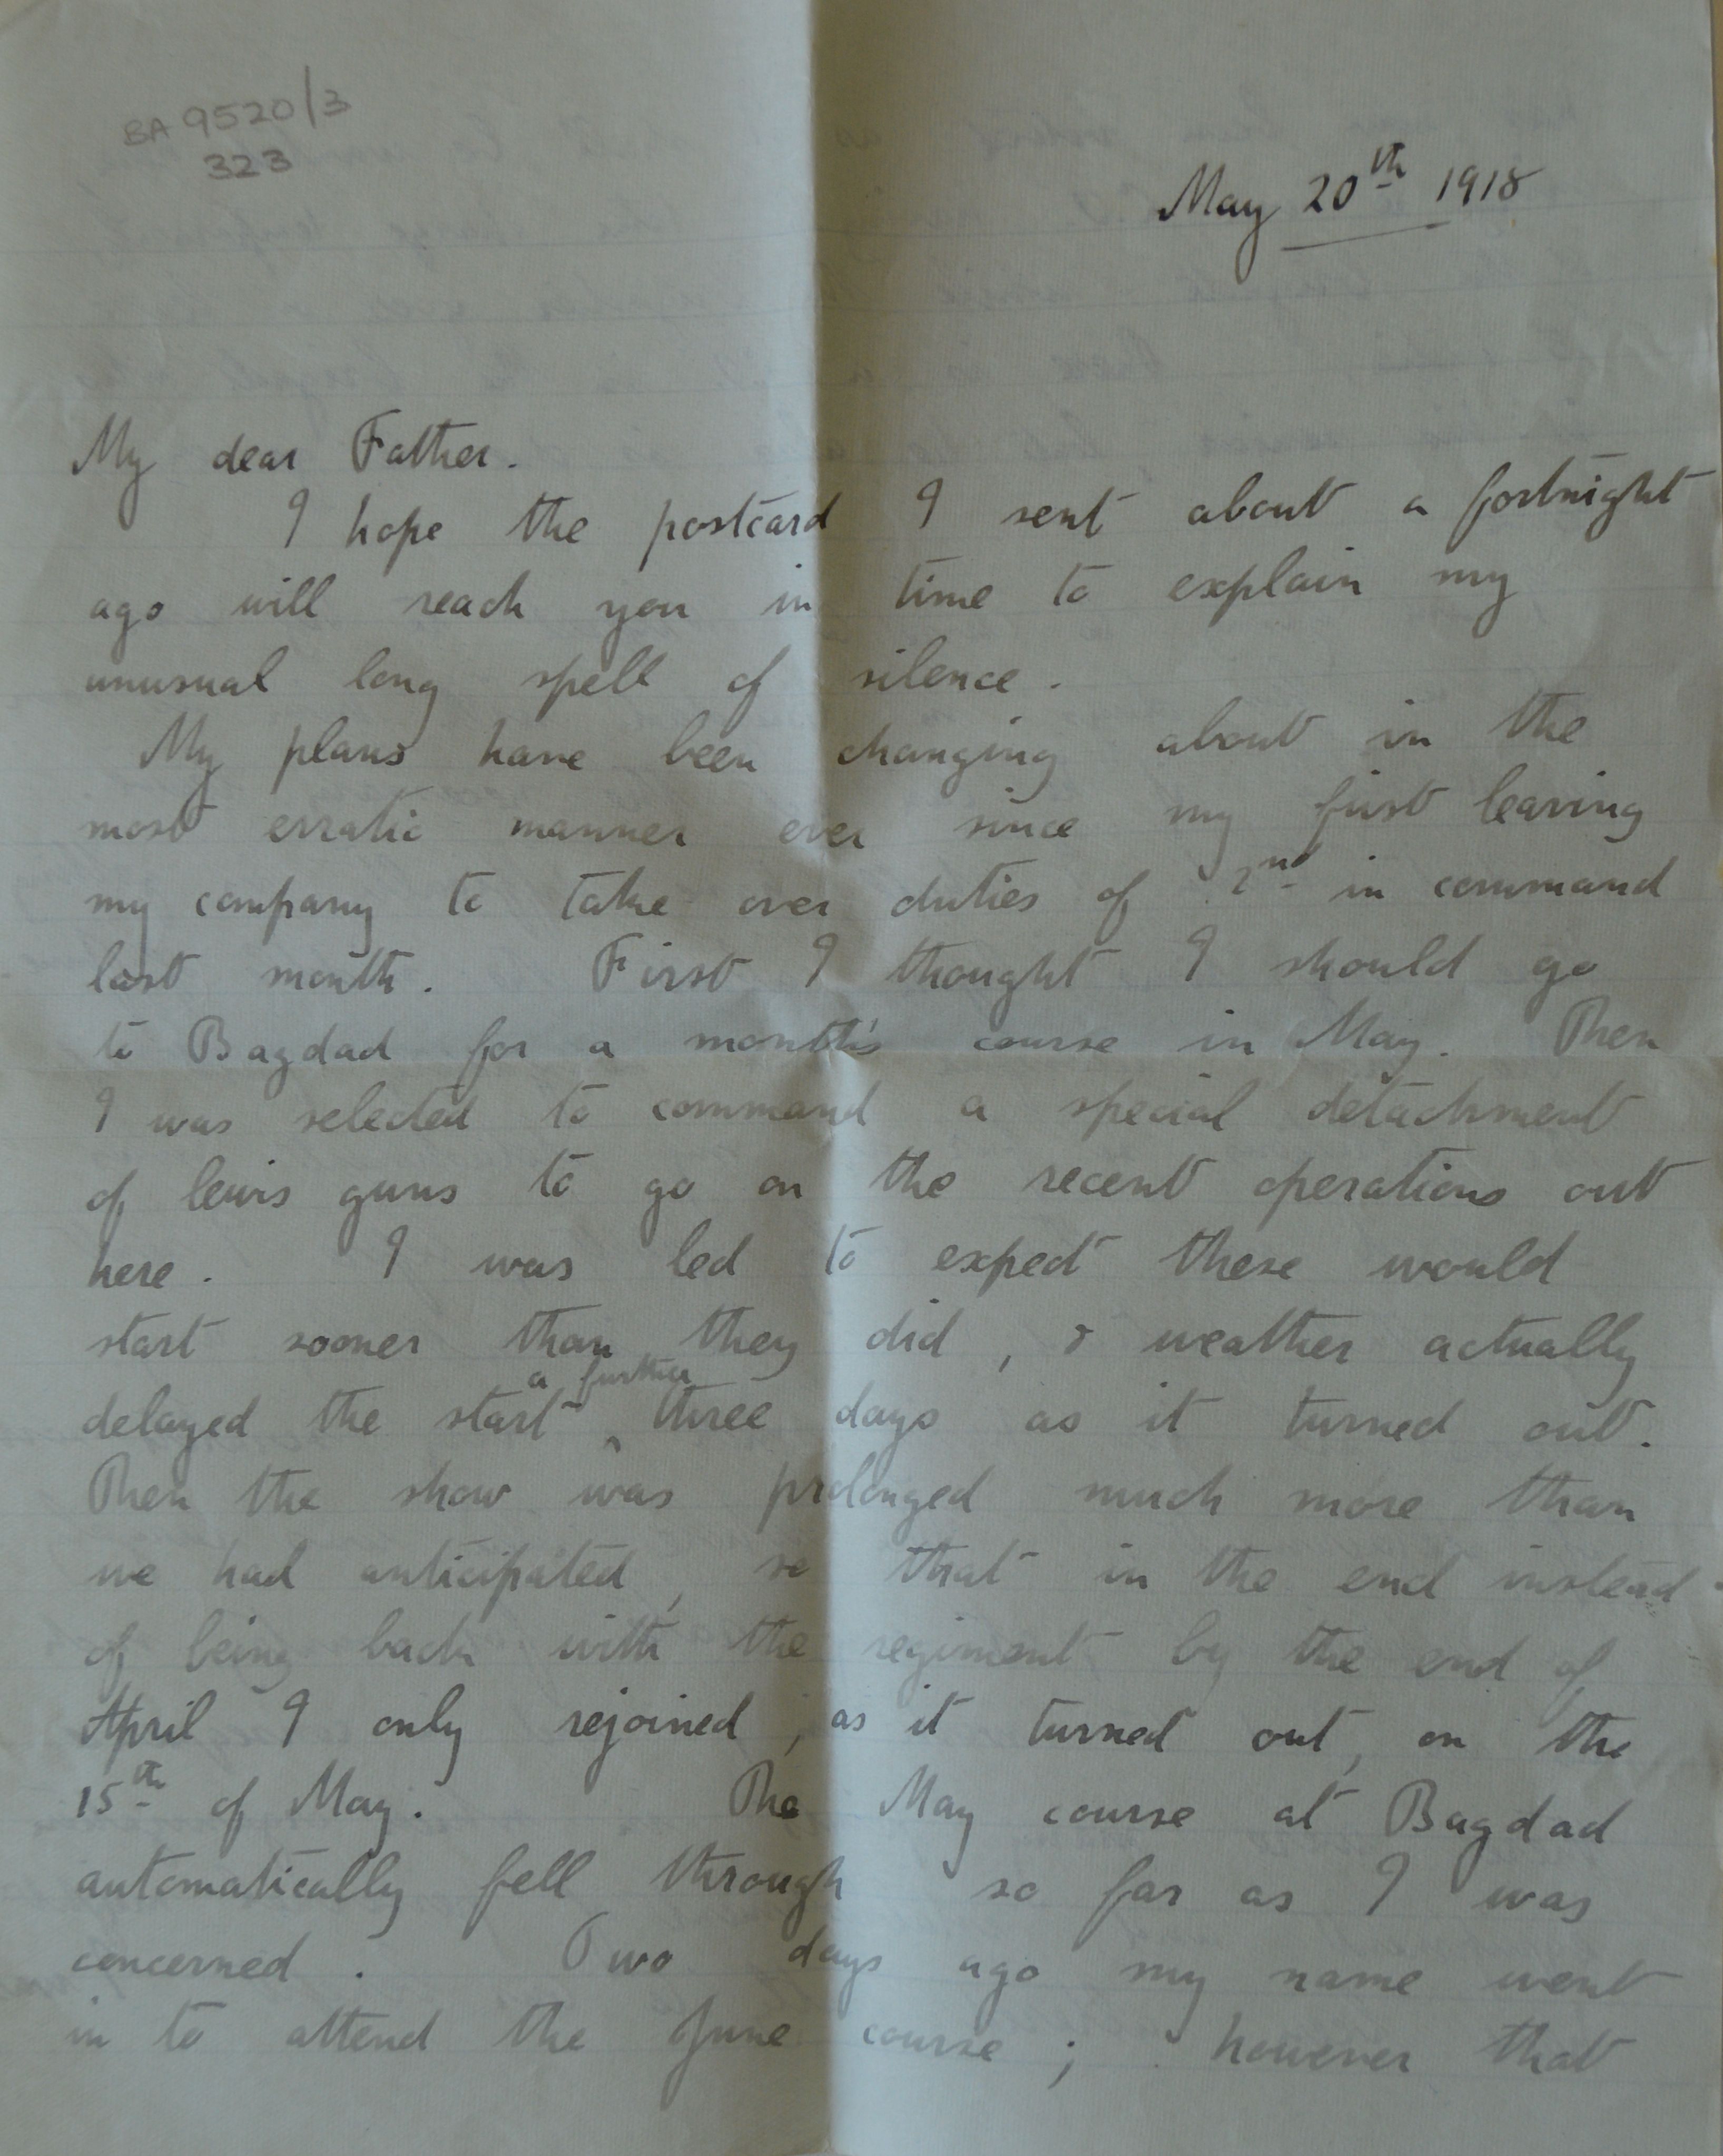 BA 9520/3
323
May 20th 1918
My dear Father.
I hope the postcard I sent about a fortnight
ago will reach you in time to explain my
unusual long spell of silence.
My plans have been changing about in the
most erratic manner ever since my first leaving
my company to take over duties of 2nd in command
last month. First I thought I should go
to Bagdad for a month's course in May. Then
I was selected to command a special detachment
of lewis guns to go on the recent operations out
here. I was led to expect these would
start sooner than they did, & weather actually
a further
delayed the start ^ three days as it turned out.
Then the show was prolonged much more than
we had anticipated, so that in the end instead
of being back with the regiment by the end of
April I only rejoined, as it turned out, on the
15th of May. The May course at Bagdad
automatically fell through so far as I was
concerned. Two days ago my name went
in to attend the June course; however that